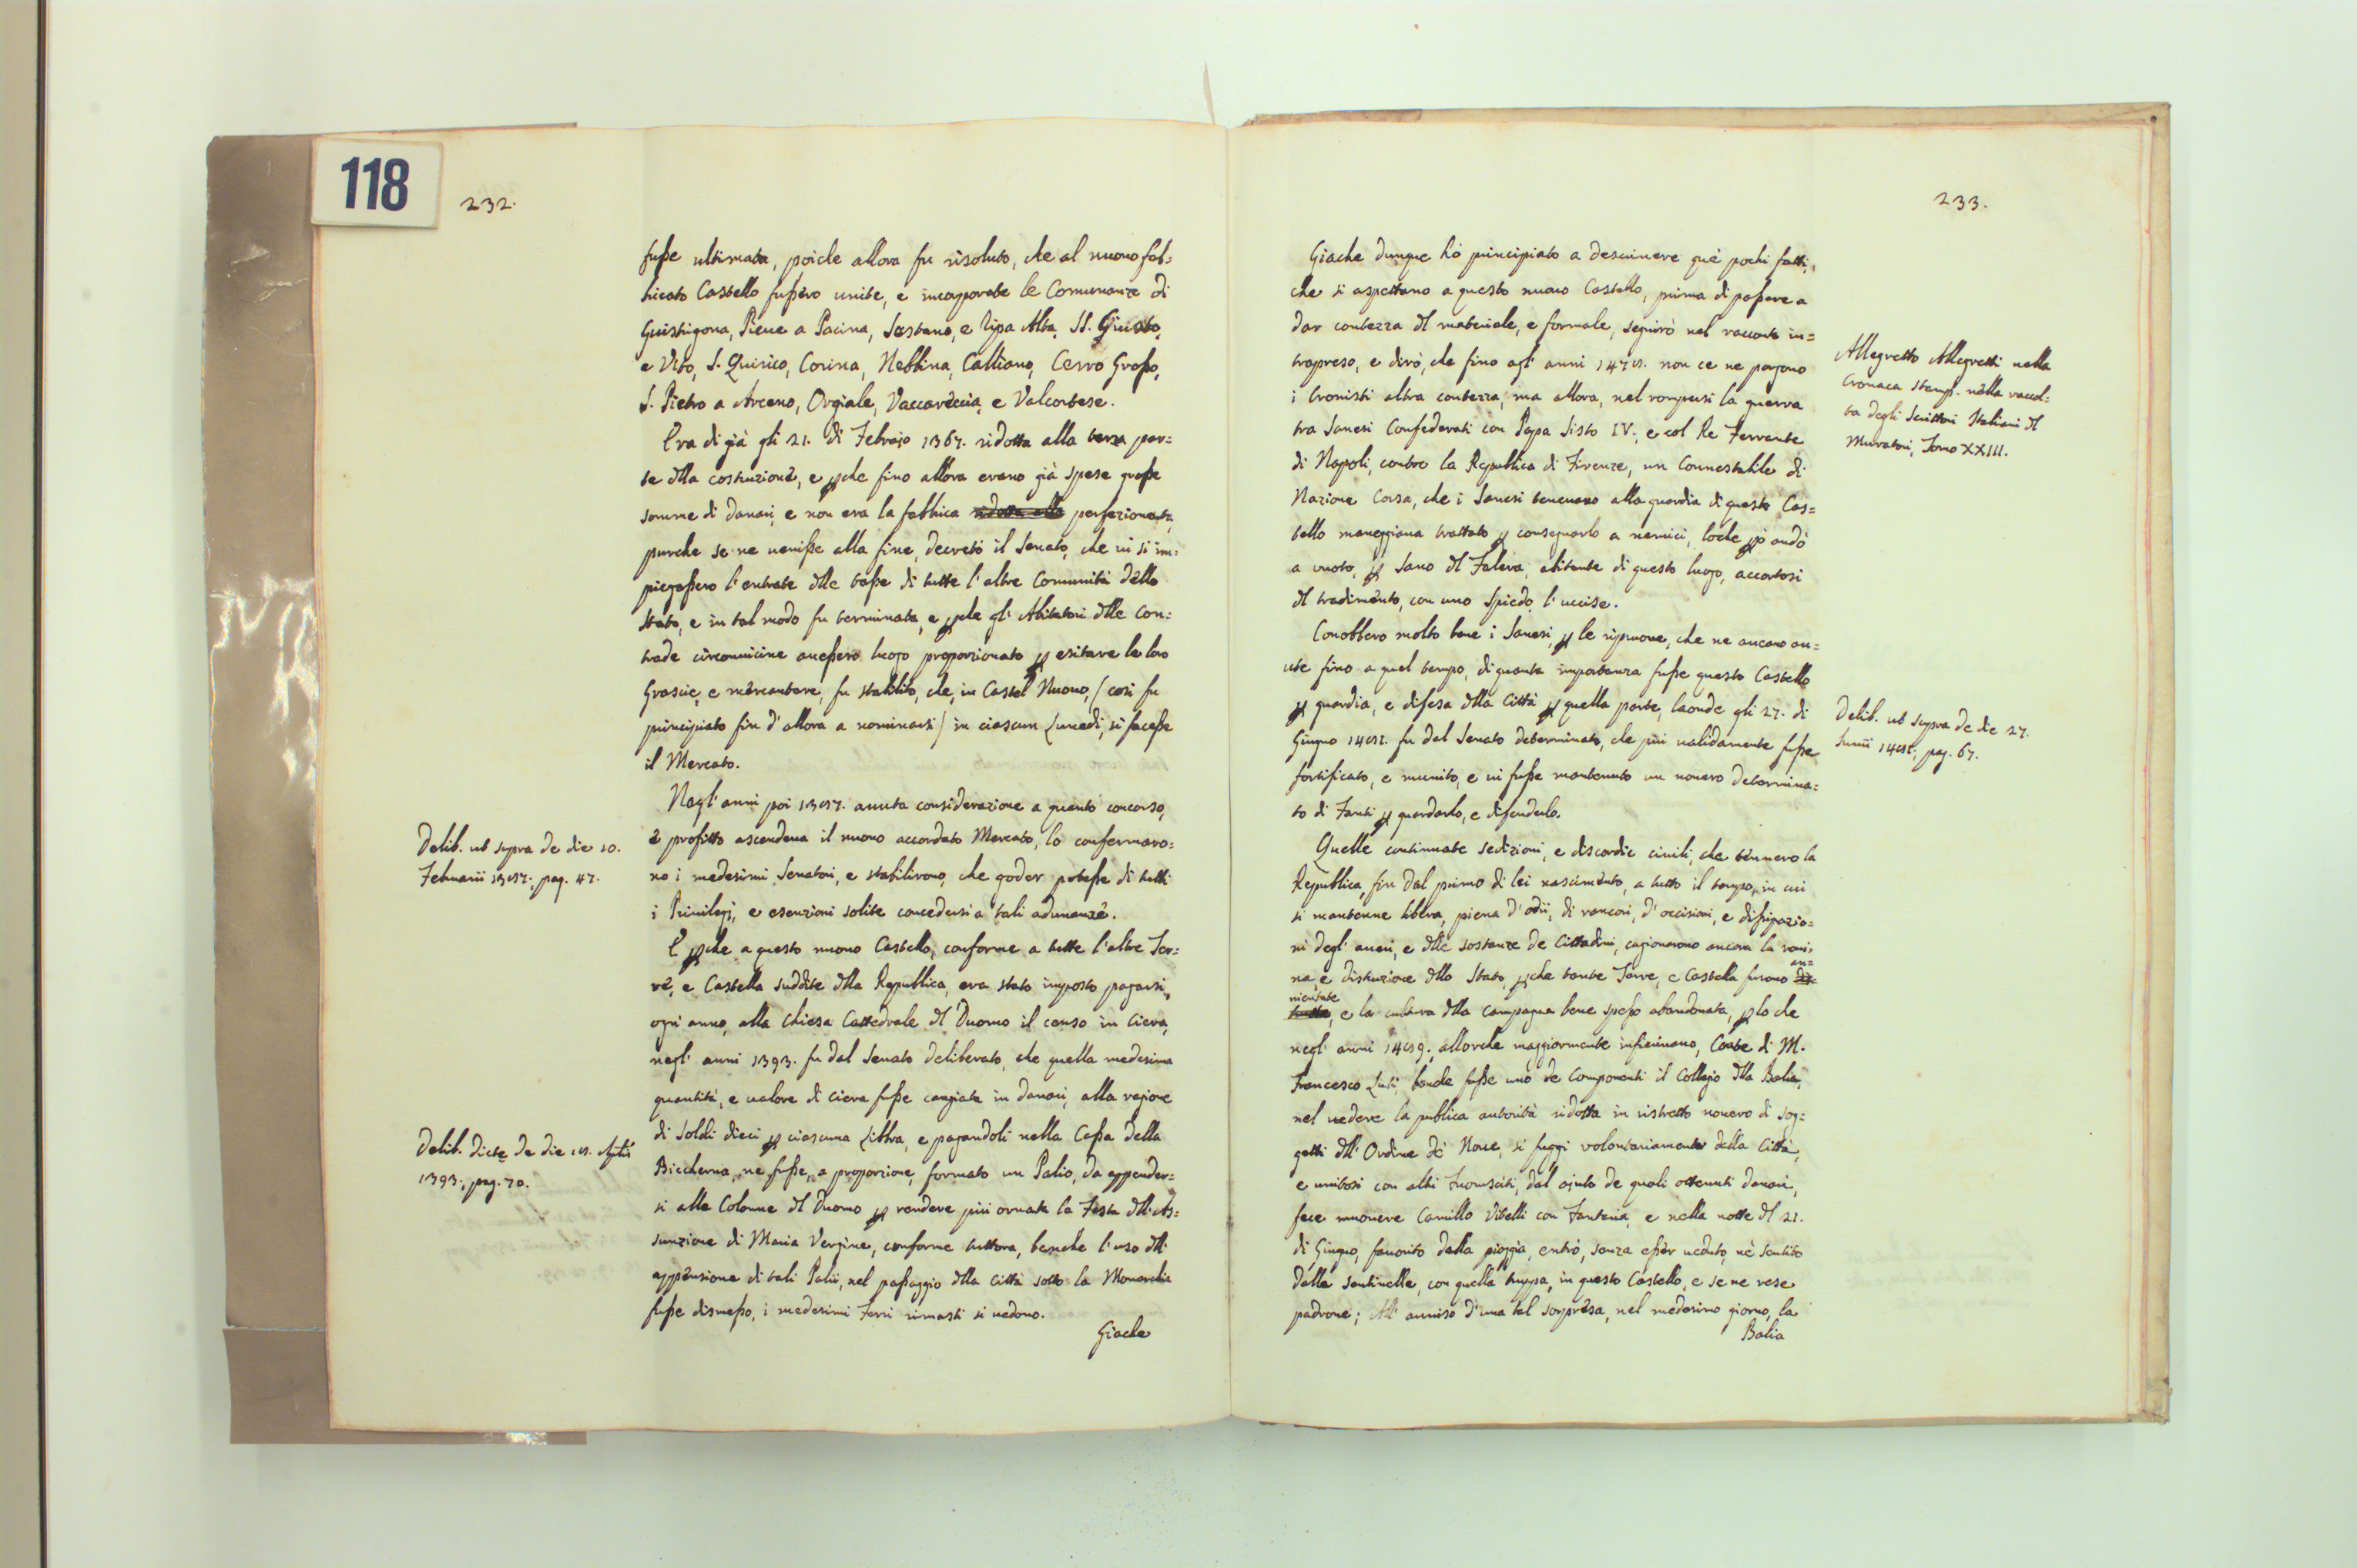 118
232.
fusse ultimata, poiche allora fu risoluto, che al nuovo fab=
bricato Castello fussero unite, e incorporate le Comunanze di
Guistrigona, Pieve a Pacina, Sestano, e Ripa Alba, SS. Giusto,
e Vito, S. Quirico, Corina, Nebbina, Cattiano, Cerro Grosso,
S. Pietro a Arceno, Orgiale, Vaccareccia, e Valcortese.
Era di già gli 21. di Febrajo 1367. ridotta alla terza par=
te dlla costruzione, e pche fino allora erano già spese grosse
somme di danari, e non era la fabbrica ridotta alla perfezionata,
purche se ne venisse alla fine, decretò il Senato, che vi si im=
piegassero l'entrate dlle tasse di tutte l'altre Comunità dello
Stato, e in tal modo fu terminata, e pche gl' Abitatori dlle Con=
trade circonvicine avessero luogo proporzionato p esitare le loro
Grascie, e mercantare, fu stabilito, che, in Castel Nuovo, / così fu
principiato fin d'allora a nominarsi / in ciascun Lunedi, si facesse
il Mercato.
Delib. ut supra de die 20.
Februarii pag. 47.
Negl' anni poi avuta considerazione a quanto concorso,
e profitto ascendeva il nuovo accordato Mercato, lo confermaro=
no i medesimi Senatori, e stabilirono, che goder potesse di tutti
i Privilegj, e esenzioni solite concedersi a tali adunanze.
E pche a questo nuovo Castello, conforme a tutte l'altre Ter=
re, e Castella suddite dlla Republica, era stato imposto pagarsi,
ogni anno, alla Chiesa Cattedrale dl Duomo il censo in Ciera,
negl' anni 1393. fu dal Senato deliberato, che quella medesima
quantità, e valore di ciera fusse cangiata in danari, alla ragione
di soldi dieci p ciascuna Libbra, e pagandoli nella Cassa della
Biccherna, ne fusse, a proporzione, formato un Palio, da appender=
si alle Colonne dl Duomo p rendere più ornata la Festa dll'As=
sunzione di Maria Vergine, conforme tuttora, benche l'uso dll'
appensione di tali Palii, nel passaggio dlla città sotto la Monarchia
fusse dismesso, i medesimi Ferri rimasti si vedono.
Delib. dicte de die
1393., pag. 70.
Giache
233.
Giache dunque hò principiato a descrivere què pochi fatti,
che si aspettano a questo nuovo Castello, prima di passare a
dar contezza dl materiale, e formale, seguirò nel racconto in=
trapreso, e dirò, che fino agl' anni non ce ne porgono
i Cronisti altra contezza, ma allora, nel rompersi la guerra
tra Sanesi Confederati con Papa Sisto IV., e col Re Ferrante
di Napoli, contro la Republica di Firenze, un Connestabile di
Nazione Corsa, che i Sanesi tenevano alla guardia di questo Cas=
tello maneggiava trattato p consegnarlo a nemici, loche pò andò
a vuoto, p Sano dl Falera, abitante di questo luogo, accortosi
dl tradimento, con uno Spiedo, l'uccise.
Allegretto Allegretti nella
Cronaca stamp. nella raccol=
ta degli Scrittori Italiani dl
Muratori, Tomo XXIII.
Conobbero molto bene i Sanesi, p le riprove, che ne avevano av=
ute fino a quel tempo, di quanta importanza fusse questo Castello
p guardia, e difesa dlla Città p quella parte, laonde gli 27. di
Giugno fu dal Senato determinato, che più validamente fusse
fortificato, e munito, e vi fusse mantenuto un novero determina=
to di Fanti p guardarlo, e difenderlo.
Delib. ut supra de die 27.
Junii pag. 67.
Quelle continuate sedizioni, e discordie civili, che tennero la
Republica, fin dal primo di lei nascimento, a tutto il tempo, in cui
si mantenne libera, piena d'odii, di rancori, d'occisioni, e dissipazio=
ni degl' averi, e dlle sostanze de Cittadini, cagionarono ancora la rovi=
na, e distruzione dllo Stato, pche tante Terre, e Castella furono an=
nientate, e la cultura dlla campagna bene spesso abandonata, plo che
negl' anni allorche maggiormente infierivano, Conte di M.
Francesco Luti, benche fusse uno de Componenti il Collegio dlla Balia,
nel vedere la publica autorità ridotta in ristretto novero di sog=
getti dll' Ordine de' Nove, si fuggì volontariamente dalla Città,
e unitosi con altri Fuorusciti, dal ajuto de quali ottenuti danari,
fece muovere Camillo Vitelli con Fanteria, e nella notte dl 21.
di Giugno, favorito dalla pioggia, entrò, senza esser veduto, nè sentito
dalle sentinelle, con quella truppa, in questo Castello, e se ne rese
padrone; All' avviso d'una tal sorpresa, nel medesimo giorno, la
Balia